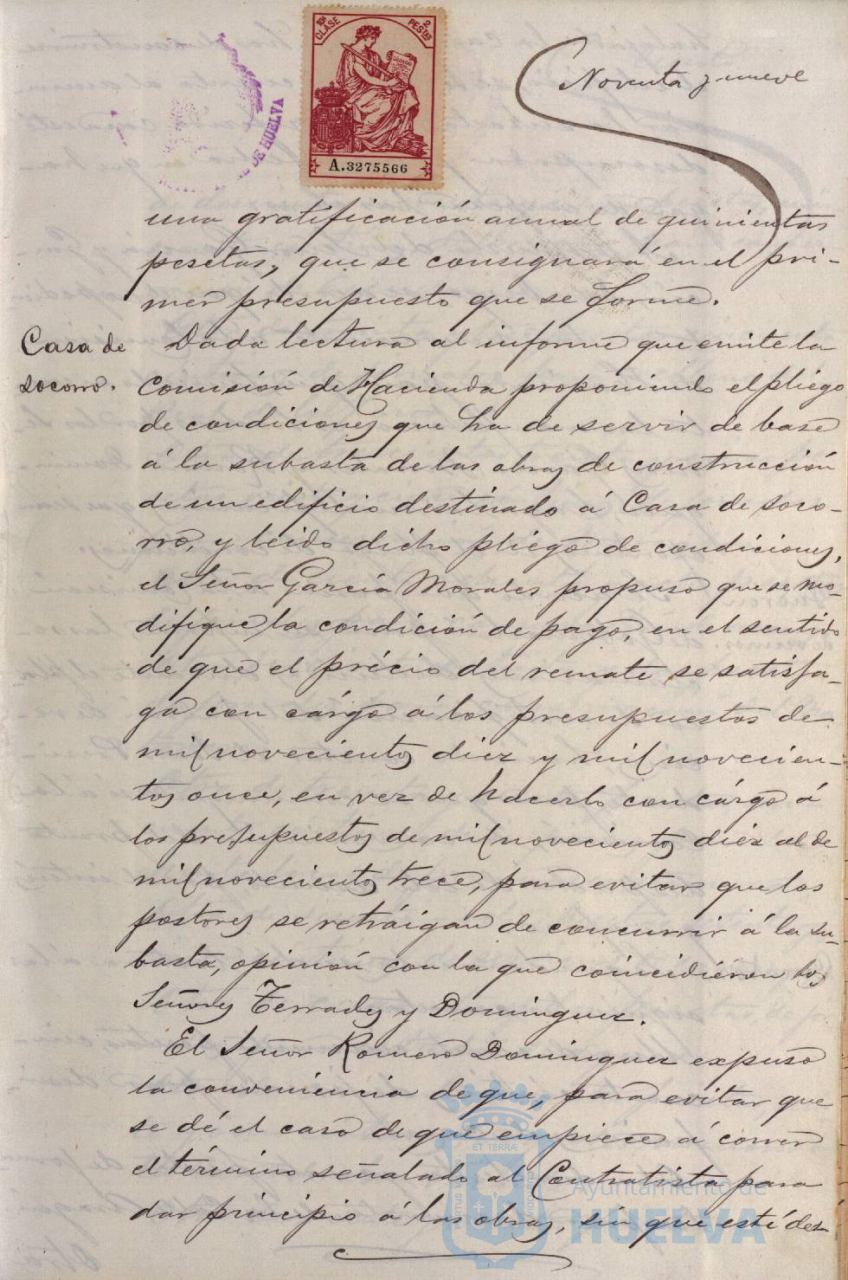 10ª CLASE 2 PESETAS
A.3275566
DE HUELVA
Noventa y nueve
una gratificación anual de quinientas
pesetas, que se consignará en el pri-
mer presupuesto que se forme.
Casa de
Socorro.
Dada lectura al informe que emite la
Comisión de Hacienda proponiendo el pliego
de condiciones que ha de servir de base
á la subasta de las obras de construcción
de un edificio destinado á Casa de Soco-
rro, y leido dicho pliego de condiciones,
el Señor García Morales propuso que se mo-
difique la condición de pago, en el sentido
de que el précio del remate se satisfa-
ga con cárgo á los presupuestos de
mil novecientos diez y mil novecien-
tos once, en vez de hacerlo con cárgo á
los presupuestos de mil novecientos diez al de
mil novecientos trece, para evitar que los
postores se retráigan de concurrir á la su-
basta, opinión con la que coincidiéron los
Señores Terrades y Dominguez.
El Señor Romero Dominguez expuso
la conveniencia de que, para evitar que
se dé el caso de que empiece á correr
el término señalado al Contratista para
dar principio á las obras, sin que esté des-
ET TERRA
Ayuntamiento de
HUELVA